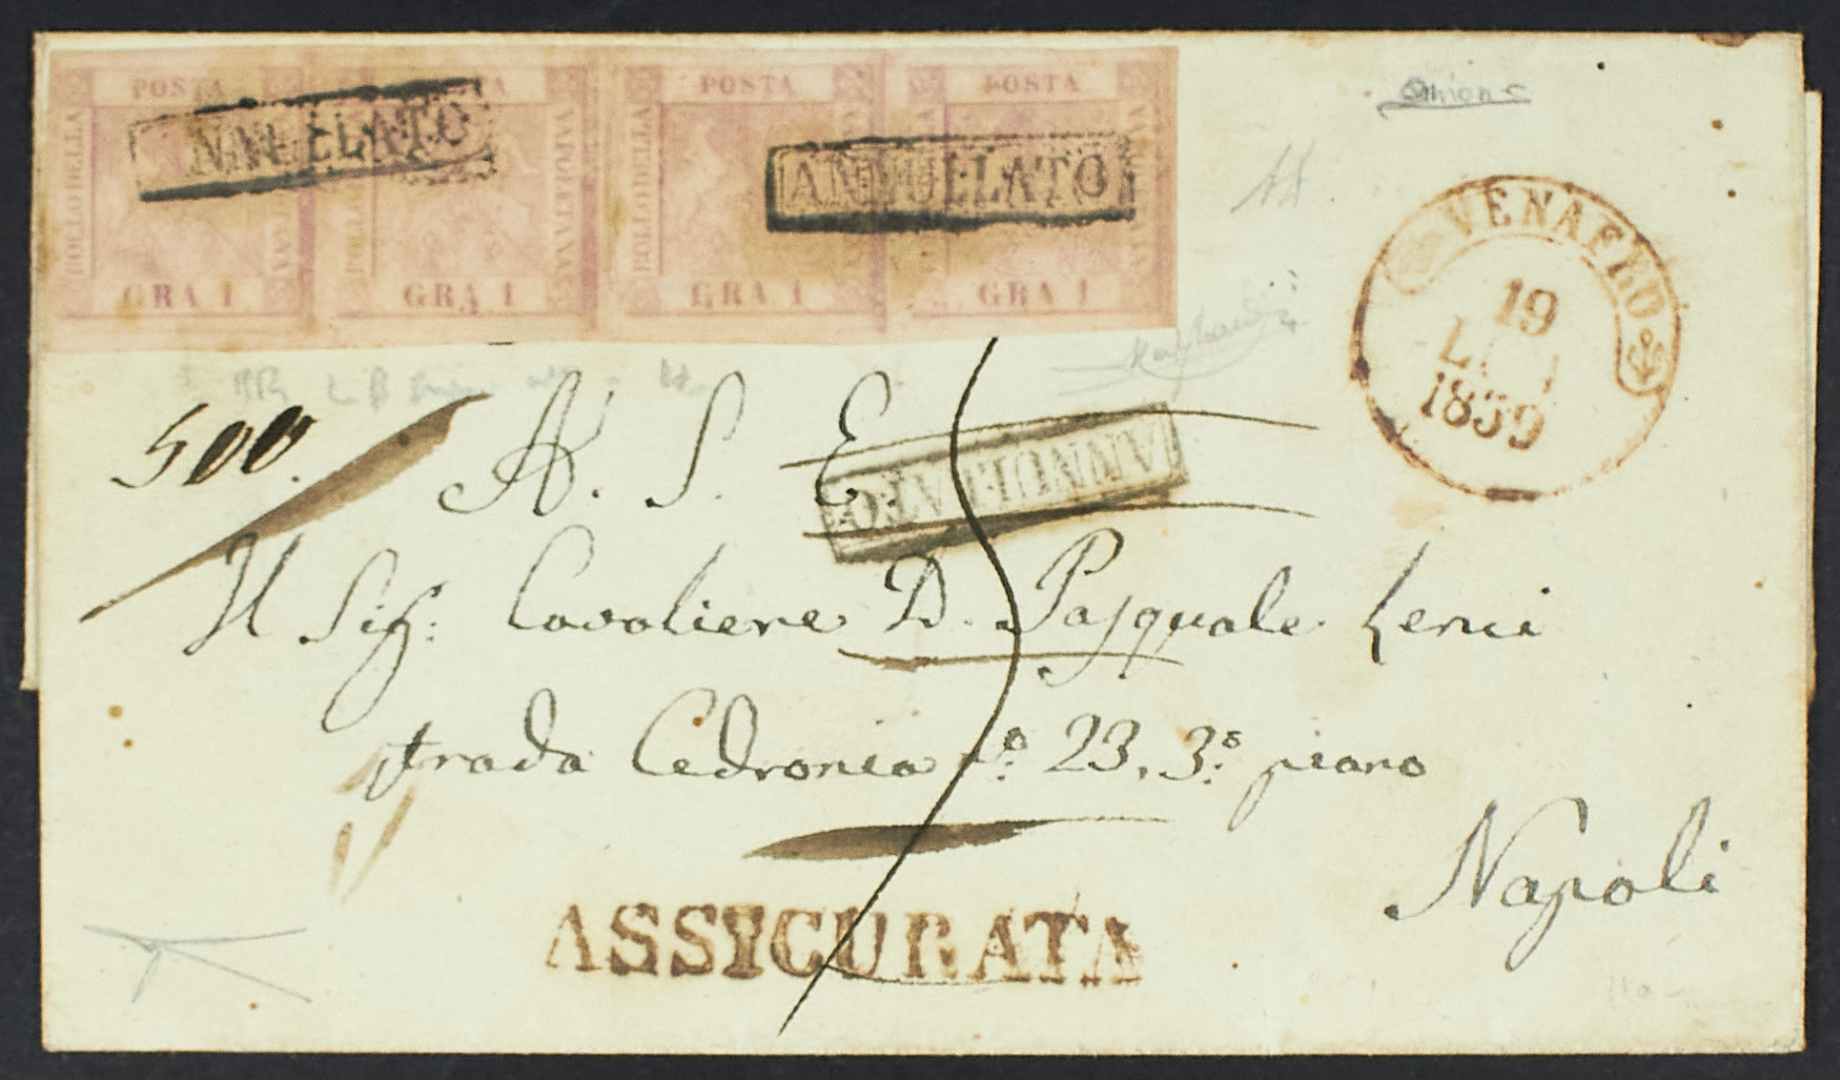 POSTA POSTA POSTA
BOLLO DELLA NAPOLETANA BOLLO DELLA NAPOLETANA BOLLO DELLA
GRA 1 GRA 1 GRA 1 GRA 1
ANNULLATO ANNULLATO
VENAFRO
19
1859
500.
A. S. E.
ANNULLATO
Il Sig: Cavaliere D. Pasquale Lenci
strada Cedronia n.° 23, 3.° piano
Napoli
ASSICURATA